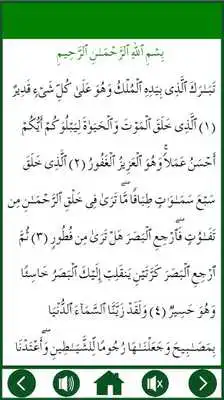 بِسْمِ ٱللَّهِ ٱلرَّحْمَـٰنِ ٱلرَّحِيمِ
تَبَـٰرَكَ ٱلَّذِى بِيَدِهِ ٱلْمُلْكُ وَهُوَ عَلَىٰ كُلِّ شَىْءٍ قَدِيرٌ
(١) ٱلَّذِى خَلَقَ ٱلْمَوْتَ وَٱلْحَيَوٰةَ لِيَبْلُوَكُمْ أَيُّكُمْ
أَحْسَنُ عَمَلًا ۚ وَهُوَ ٱلْعَزِيزُ ٱلْغَفُورُ (٢) ٱلَّذِى خَلَقَ
سَبْعَ سَمَـٰوَٰتٍ طِبَاقًا ۖ مَّا تَرَىٰ فِى خَلْقِ ٱلرَّحْمَـٰنِ مِن
تَفَـٰوُتٍ ۖ فَٱرْجِعِ ٱلْبَصَرَ هَلْ تَرَىٰ مِن فُطُورٍ (٣) ثُمَّ
ٱرْجِعِ ٱلْبَصَرَ كَرَّتَيْنِ يَنقَلِبْ إِلَيْكَ ٱلْبَصَرُ خَاسِئًا
وَهُوَ حَسِيرٌ (٤) وَلَقَدْ زَيَّنَّا ٱلسَّمَآءَ ٱلدُّنْيَا
بِمَصَـٰبِيحَ وَجَعَلْنَـٰهَا رُجُومًا لِّلشَّيَـٰطِينِ ۖ وَأَعْتَدْنَا